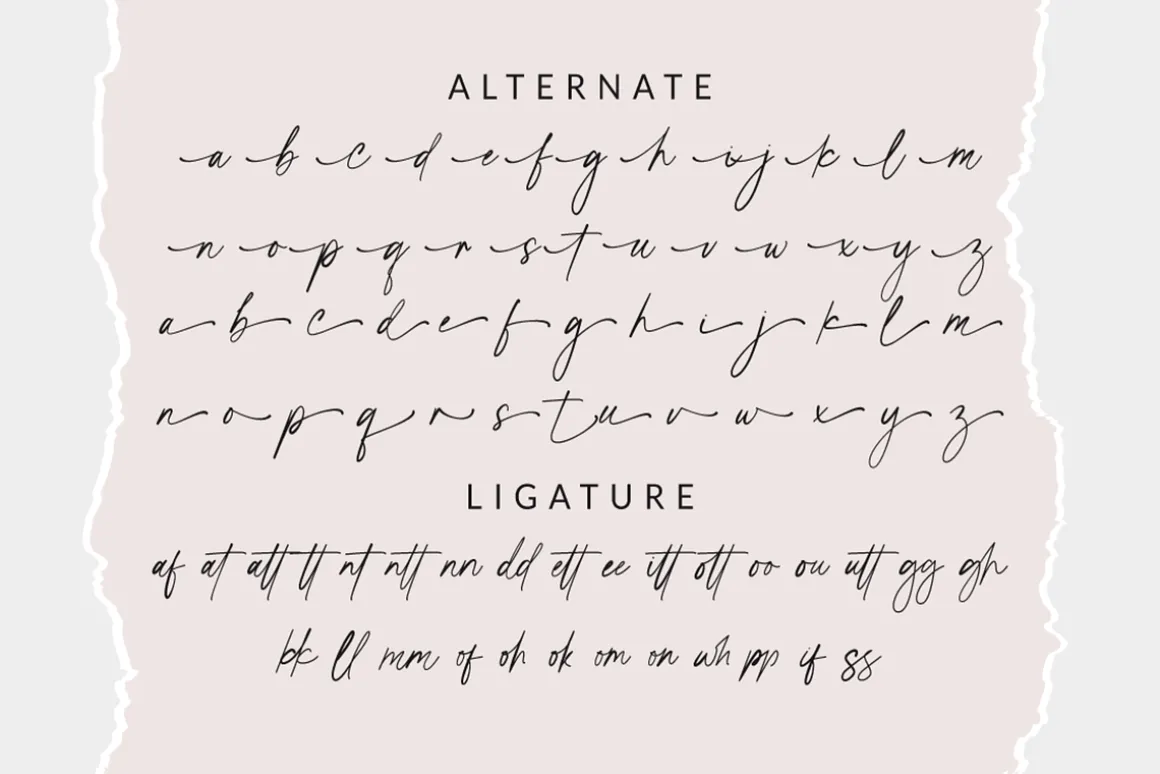 ALTERNATE
a b c d e f g h i j k l m
n o p q r s t u v w x y z
a b c d e f g h i j k l m
n o p q r s t u v w x y z
LIGATURE
af at att tt nt ntt nn dd ett ee itt ott oo ou utt gg gh
kk ll mm of oh ok om on wh pp if ss